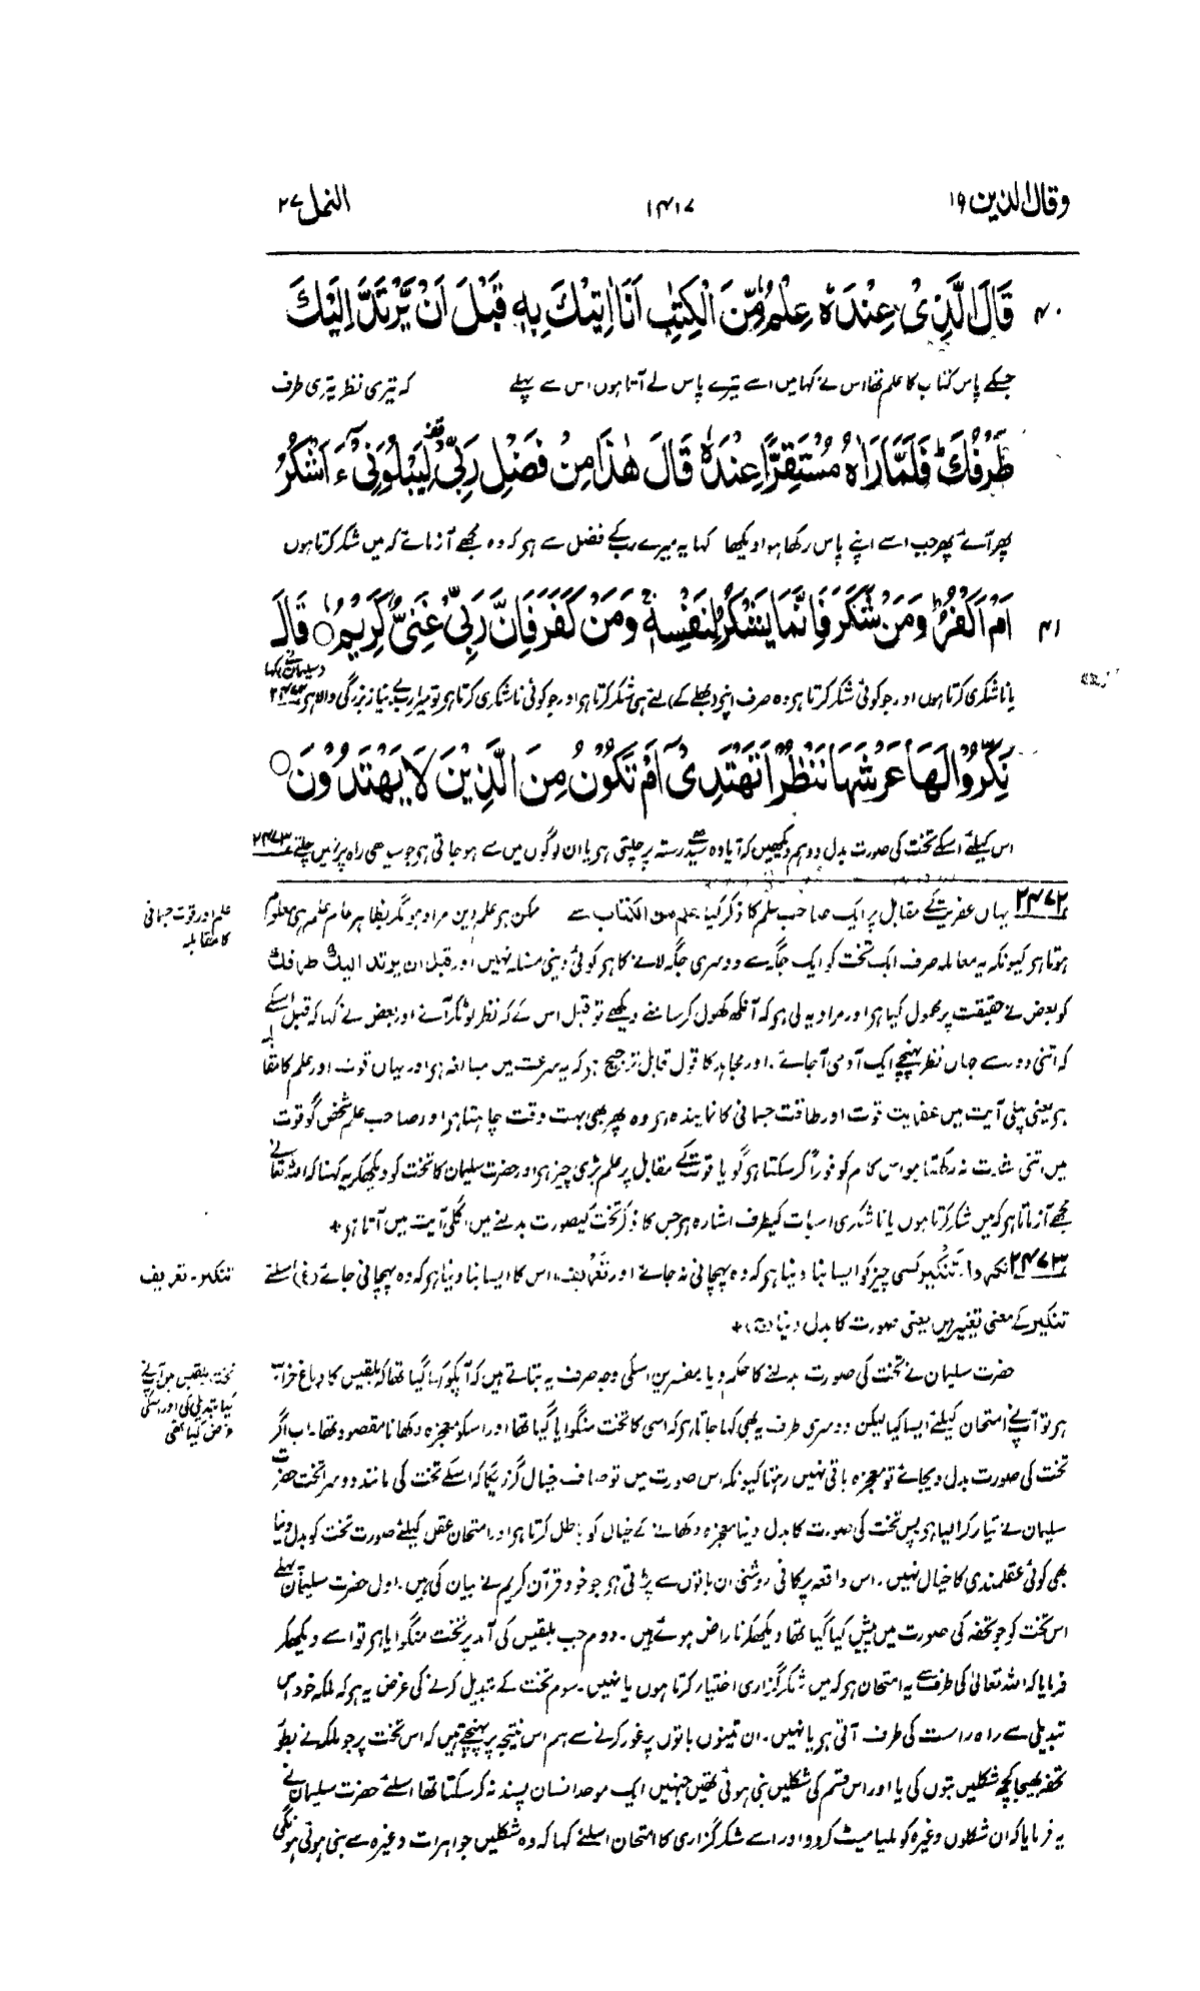 وقال الذین ۱۹
۱۴۱۷
النمل ۲۷
۴۰ قَالَ الَّذِىْ عِنْدَهٗ عِلْمٌ مِّنَ الْكِتٰبِ اَنَا اٰتِيْكَ بِهٖ قَبْلَ اَنْ يَّرْتَدَّ اِلَيْكَ
جسکے پاس کتاب کا علم تھا اس نے کہا میں اسے تیرے پاس لے آتا ہوں اس سے پہلے کہ تیری نظر تیری طرف
طَرْفُكَ ؕ فَلَمَّا رَاٰهُ مُسْتَقِرًّا عِنْدَهٗ قَالَ هٰذَا مِنْ فَضْلِ رَبِّىْ ۖ لِيَبْلُوَنِىْٓ ءَاَشْكُرُ
پھر آئے پھر جب اسے اپنے پاس رکھا ہوا دیکھا کہا یہ میرے رب کے فضل سے ہو کہ وہ مجھے آزمائے کہ میں شکر کرتا ہوں
اَمْ اَكْفُرُ ؕ وَمَنْ شَكَرَ فَاِنَّمَا يَشْكُرُ لِنَفْسِهٖ ۚ وَمَنْ كَفَرَ فَاِنَّ رَبِّىْ غَنِىٌّ كَرِيْمٌ ○ قَالَ
۴۱
یا ناشکری کرتا ہوں اور جو کوئی شکر کرتا ہو وہ صرف اپنے (بھلے کے) لئے ہی شکر کرتا ہو اور جو کوئی ناشکری کرتا ہو تو میرا رب بے نیاز بزرگی والا ہو ۲۴۷۲ (سلیمان نے) کہا
نَكِّرُوْا لَهَا عَرْشَهَا نَنْظُرْ اَتَهْتَدِىْٓ اَمْ تَكُوْنُ مِنَ الَّذِيْنَ لَا يَهْتَدُوْنَ ○
اس کیلئے اسکے تخت کی صورت بدل دو ہم دیکھیں کہ آیا وہ سیدھے رستہ پر چلتی ہو یا ان لوگوں میں سے ہو جاتی ہو جو سیدھی راہ پر نہیں چلتے ۲۴۷۳
۲۴۷۲ یہاں عفریت کے مقابل پر ایک صاحب علم کا ذکر کیا علم من الکتاب سے ممکن ہو علم دین مراد ہو مگر بظاہر عام علم ہی معلوم
علم اور قوت جسمانی
کا مقابلہ
ہوتا ہو کیونکہ یہ معاملہ صرف ایک تخت کو ایک جگہ سے دوسری جگہ لانے کا ہو کوئی دینی مسئلہ نہیں اور قبل ان یرتد الیک طرفک
کو بعض نے حقیقت پر محمول کیا ہو اور مراد یہ لی ہو کہ آنکھ کھول کر سامنے دیکھے تو قبل اس کے کہ نظر لوٹکر آئے اور بعض نے کہا کہ قبل اسکے
کہ اتنی دور سے جہاں نظر پہنچے ایک آدمی آ جائے۔ اور مجاہد کا قول قابل ترجیح ہو کہ یہ سرعت میں مبالغہ ہو اور یہاں قوت اور علم کا مقابلہ
ہو یعنی پہلی آیت میں عفریت قوت اور طاقت جسمانی کا نمایندہ ہو وہ پھر بھی بہت وقت چاہتا ہو اور صاحب علم شخص گو قوت
میں اتنی شدت نہ رکھتا ہو اس کام کو فوراً کر سکتا ہو گویا قوت کے مقابل پر علم بڑی چیز ہو اور حضرت سلیمان کا تخت کو دیکھکر یہ کہنا کہ اللہ تعالیٰ نے
مجھے آزماتا ہو کہ میں شکر کرتا ہوں یا ناشکری اسبات کیطرف اشارہ ہو جس کا ذکر تخت کیصورت بدلنے میں اگلی آیت میں آتا ہو +
۲۴۷۳ نکروا۔ تنکیر کسی چیز کو ایسا بنا دینا ہو کہ وہ پہچانی نہ جائے اور تعریف اس کا ایسا بنا دینا ہو کہ وہ پہچانی جائے (غ) اسلئے
تنکیر۔ تعریف
تنکیر کے معنی تغییر ہیں یعنی صورت کا بدل دینا (ج) +
حضرت سلیمان نے تخت کی صورت بدلنے کا حکم دیا مفسرین اسکی وجہ صرف یہ بتاتے ہیں کہ آپکو کہا گیا تھا کہ بلقیس کا دماغ خراب
تخت بلقیس میں آپ نے
کیا تبدیلی کی اور اسکی
غرض کیا تھی
ہو تو آپنے امتحان کیلئے ایسا کیا لیکن دوسری طرف یہ بھی کہا جاتا ہو کہ اسی کا تخت منگوایا گیا تھا اور اسکو معجزہ دکھانا مقصود تھا۔ اب اگر
تخت کی صورت بدل دیجائے تو معجزہ باقی نہیں رہتا کیونکہ اس صورت میں تو صاف خیال گزریگا کہ اسکے تخت کی مانند دوسرا تخت حضرت
سلیمان نے تیار کرا لیا ہو پس تخت کی صورت کا بدل دینا معجزہ دکھانے کے خیال کو باطل کرتا ہو اور امتحان عقل کیلئے صورت تخت کو بدل دینا
بھی کوئی عقلمندی کا خیال نہیں۔ اس واقعہ پر کافی روشنی ان باتوں سے پڑتی ہو جو خود قرآن کریم نے بیان کی ہیں۔ اول حضرت سلیمان پہلے
اس تخت کو جو تحفہ کی صورت میں پیش کیا گیا تھا دیکھکر ناراض ہوئے ہیں۔ دوم جب بلقیس کی آمد پر تخت منگوایا ہو تو اسے دیکھکر
فرمایا کہ اللہ تعالیٰ کی طرف سے یہ امتحان ہو کہ میں شکر گزاری اختیار کرتا ہوں یا نہیں۔ سوم تخت کے تبدیل کرنے کی غرض یہ ہو کہ ملکہ خود اس
تبدیلی سے راہ راست کی طرف آتی ہو یا نہیں۔ ان تینوں باتوں پر غور کرنے سے ہم اس نتیجہ پر پہنچتے ہیں کہ اس تخت پر جو ملکہ نے بطور
تحفہ بھیجا کچھ شکلیں بتوں کی یا اور اس قسم کی شکلیں بنی ہوئی تھیں جنہیں ایک موحد انسان پسند نہ کر سکتا تھا اسلئے حضرت سلیمان نے
یہ فرمایا کہ ان شکلوں وغیرہ کو ملیامیٹ کر دو اور اسے شکر گزاری کا امتحان اسلئے کہا کہ وہ شکلیں جواہرات وغیرہ سے بنی ہوئی ہونگی